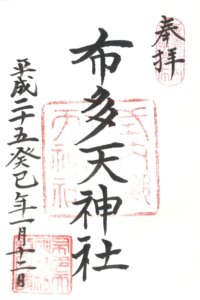 奉拝
布多天神社
平成二十五癸巳年一月十二日